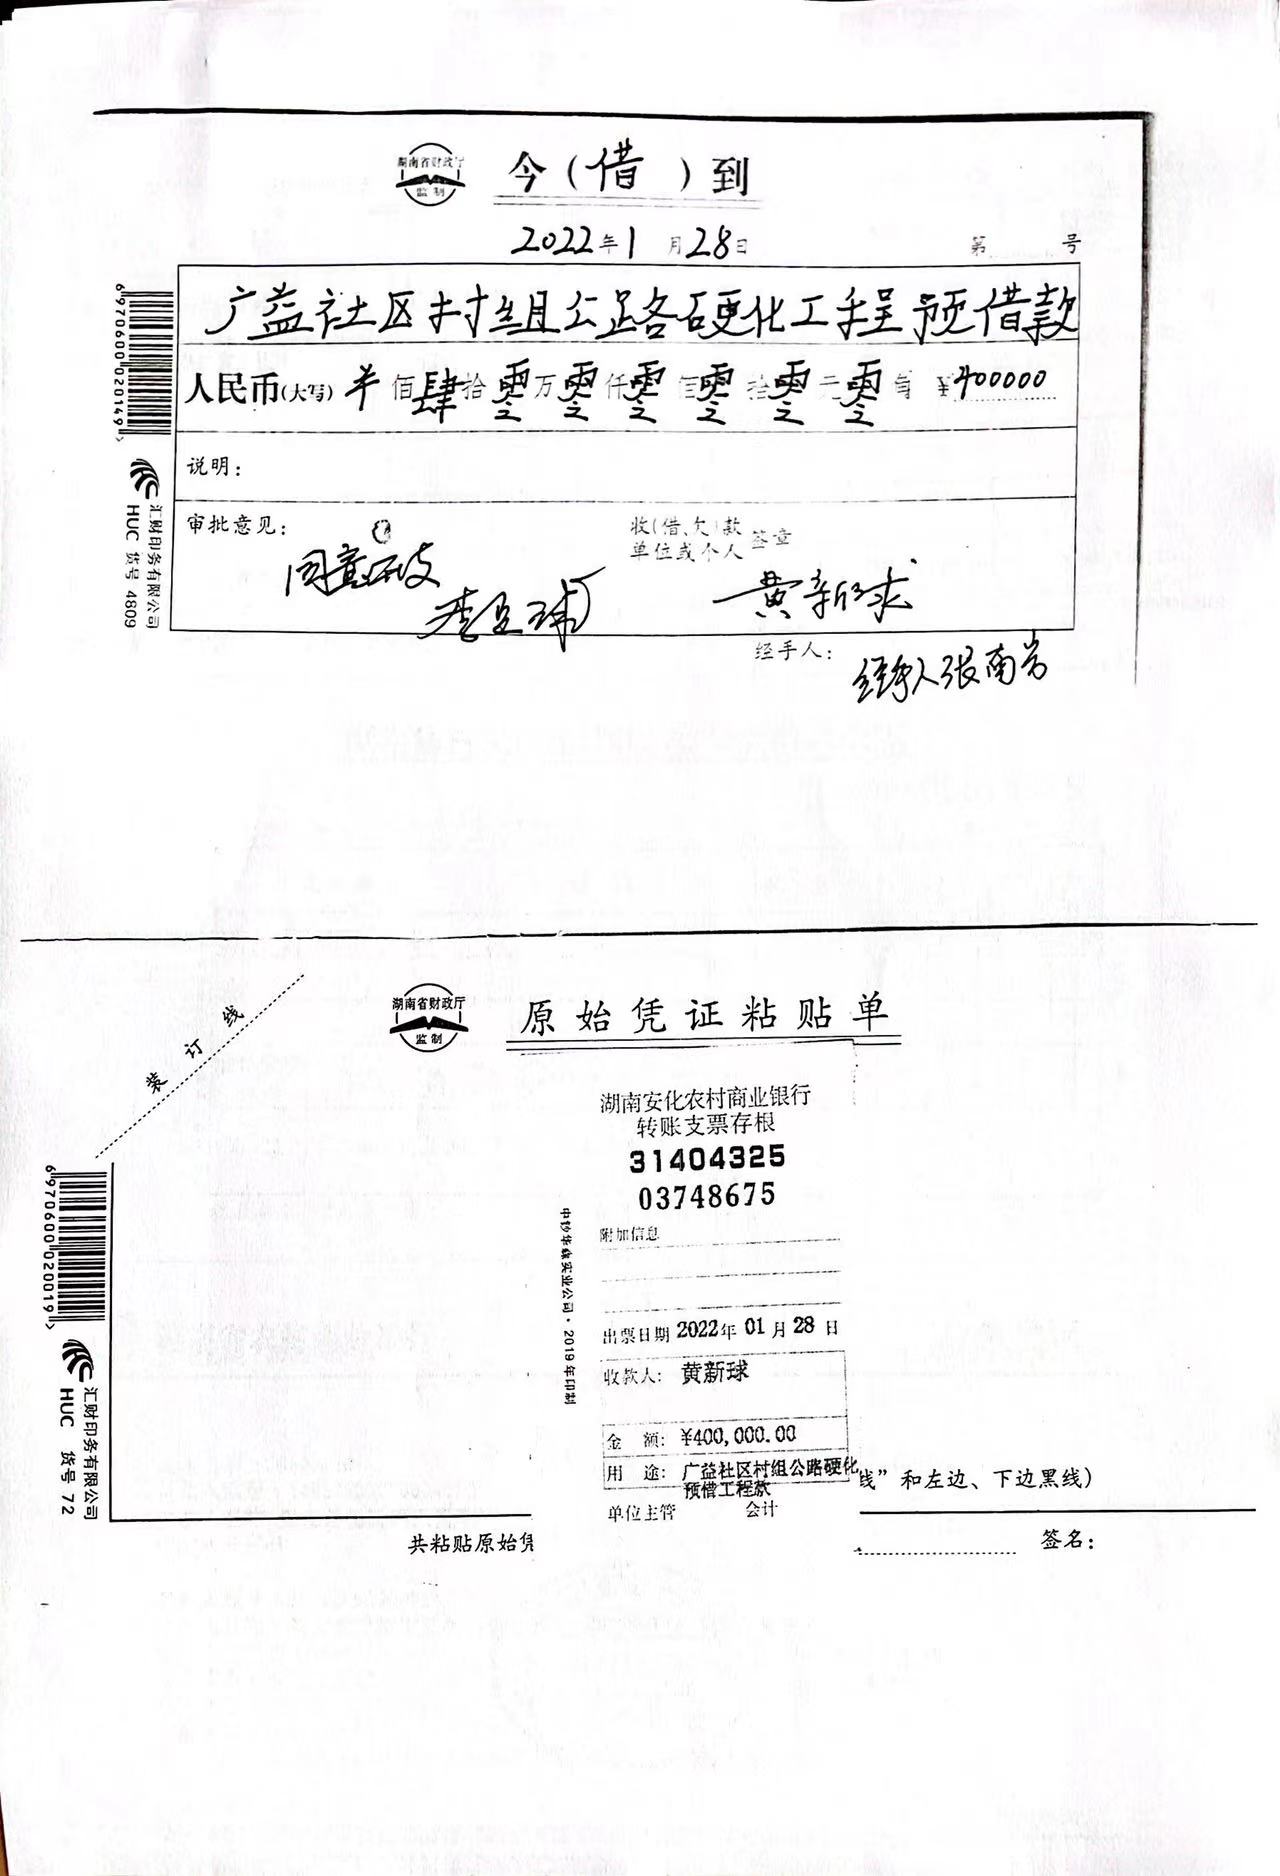 湖南省财政厅
监制
今(借)到
2022年1月28日
第 号
广益社区村组公路硬化工程预借款
人民币(大写) 半佰肆拾零万零仟零佰零拾零元零角 ¥400000
说明:
审批意见:
收(借、欠)款
单位或个人 签章
黄新球
经手人:
经手人张南岩
6970600020149>
HUC 汇财印务有限公司
货号 4809
装订线
湖南省财政厅
监制
原始凭证粘贴单
湖南安化农村商业银行
转账支票存根
31404325
03748675
附加信息
中钞华森实业公司·2019年印制
出票日期 2022年01月28日
收款人: 黄新球
金 额: ¥400,000.00
用 途: 广益社区村组公路硬化
预借工程款
单位主管 会计
线”和左边、下边黑线)
共粘贴原始凭
签名:
6970600020019>
HUC 汇财印务有限公司
货号 72